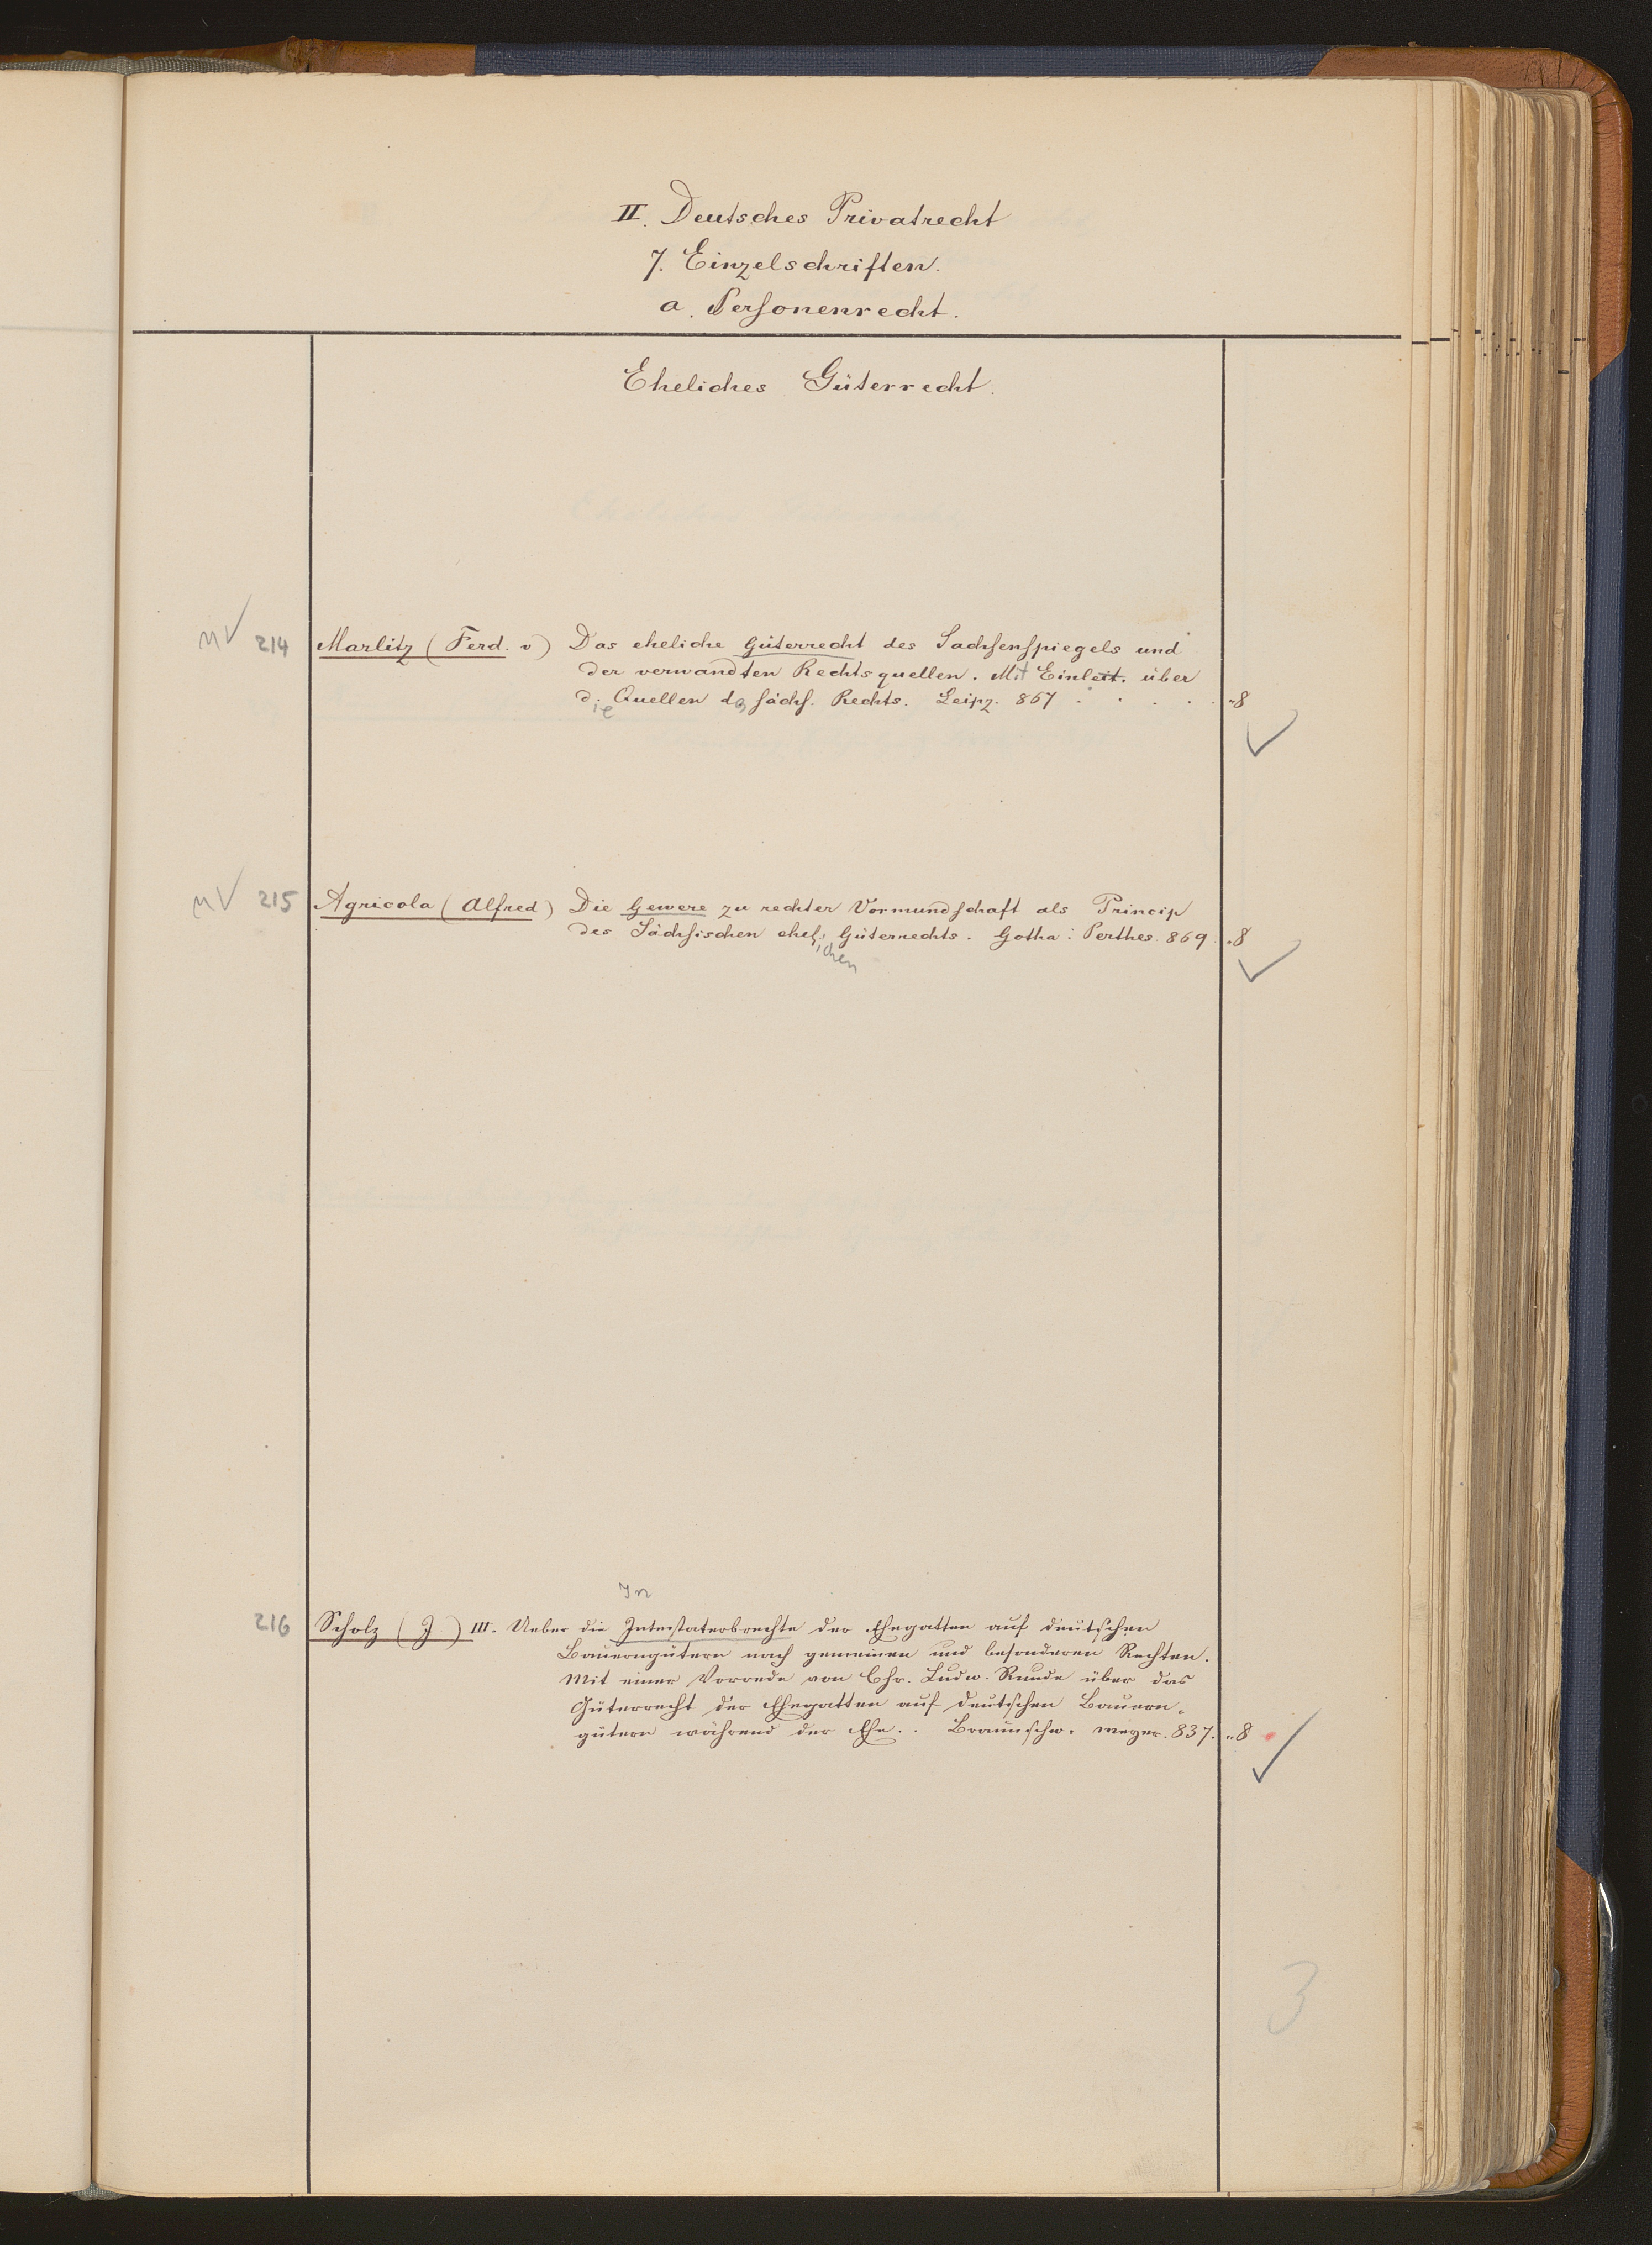 II. Deutsches Privatrecht
7. Einzelschriften.
a. Personenrecht.
Eheliches Güterrecht.
214 Marlitz (Ferd. v) Das eheliche Güterrecht des Sachsenspiegels und
der verwandten Rechtsquellen. Mit Einleit. über
die Quellen des sächs. Rechts. Leipz. 867 . . . . . 8
215 Agricola (Alfred) Die Gewere zu rechter Vormundschaft als Princip
des Sächsischen ehelichen Güterrechts. Gotha: Perthes. 869. 8
In
216 Scholz (J.) III. Ueber die Intestaterbrechte der Ehegatten auf deutschen
Bauerngütern nach gemeinen und besonderen Rechten.
Mit einer Vorrede von Chr. Ludw. Runde über das
Güterrecht der Ehegatten auf deutschen Bauern-
gütern während der Ehe. . Braunschw. Meyer. 837. 8
3